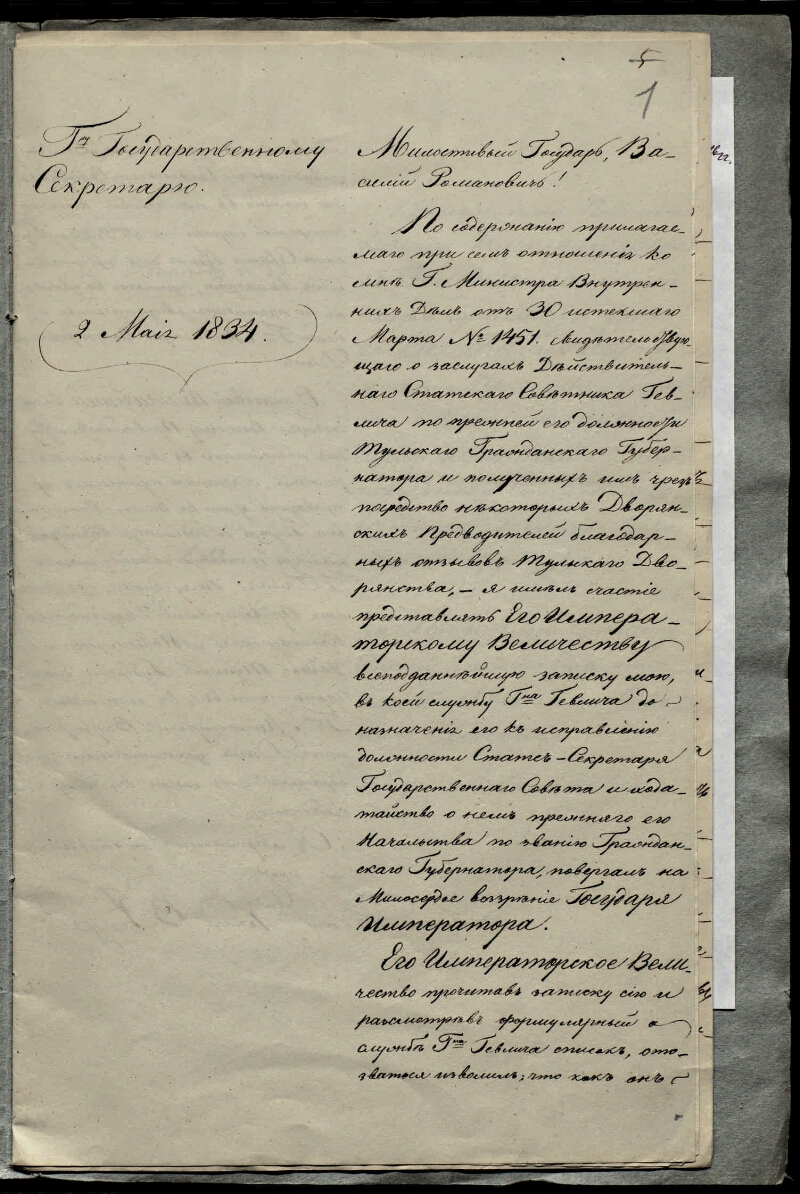 5
1
Гну Государственному
Секретарю.
2 Маія 1834.
Милостивый Государь, Ва-
силій Романовичь!
По содержанію прилагае-
маго при семъ отношенія ко
мнѣ Г. Министра Внутрен-
нихъ Дѣлъ отъ 30 истекшаго
Марта № 1451. свидѣтельствую-
щаго о заслугахъ Дѣйствитель-
наго Статскаго Совѣтника Гев-
лича по прежней его должности
Тульскаго Гражданскаго Губер-
натора и полученныхъ имъ чрезъ
посредство нѣкоторыхъ Дворян-
скихъ Предводителей благодар-
ныхъ отзывовъ Тульскаго Дво-
рянства, - я имѣлъ счастіе
представлять Его Импера-
торскому Величеству
всеподданнѣйшую записку мою,
въ коей службу Гна Гевлича до
назначенія его къ исправленію
должности Статсъ-Секретаря
Государственнаго Совѣта и хода-
тайство о немъ прежняго его
Начальства по званію Граждан-
скаго Губернатора, повергалъ на
Милосердое воззрѣніе Государя
Императора.
Его Императорское Вели-
чество прочитавъ записку сію и
разсмотрѣвъ формулярный о
службѣ Гна Гевлича списокъ, ото-
зваться изволилъ; что какъ онъ